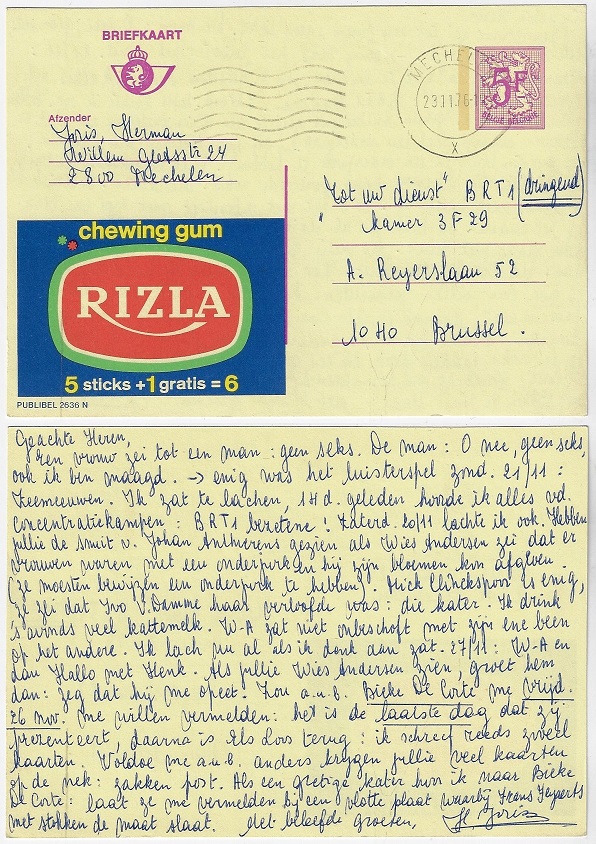 BRIEFKAART
MECHEL
23.11.76-1
5F
BELGIE-BELGIQUE
X
Afzender
Joris, Herman
Willem Geefsstr 24
2800 Mechelen
"Tot uw dienst" BRT1 (dringend)
Kamer 3F29
A. Reyerslaan 52
1040 Brussel.
chewing gum
RIZLA
5 sticks + 1 gratis = 6
PUBLIBEL 2636 N
Geachte Heren,
Een vrouw zei tot een man: geen seks. De man: O nee, geen seks,
ook ik ben maagd. → enig was het luisterspel zond. 21/11:
Zeemeeuwen. Ik zat te lachen, 14 d. geleden hoorde ik alles vd.
Concentratiekampen: BRT1 bedankt! Zaterd. 20/11 lachte ik ook. Hebben
jullie de smuit v. Johan Anthierens gezien als Wies Andersen zei dat er
vrouwen waren met een onderjurk en hij zijn bloemen kon afgeven.
(ze moesten bewijzen een onderjurk te hebben). Mick Clinckspoor is enig,
ze zei dat Ivo V. Damme haar verloofde was: die kater. Ik drink
's avonds veel kattemelk. W-A zat niet onbeschoft met zijn ene been
op het andere. Ik lach nu al als ik denk aan zat. 27/11: W-A en
dan Hallo met Henk. Als jullie Wies Andersen zien, groet hem
dan: zeg dat hij me opeet! Zou a.u.b. Bieke De Corte me vrijd.
26 nov. me willen vermelden: het is de laatste dag dat zij
presenteert, daarna is Els Loos terug: ik schreef reeds zoveel
kaarten. Voldoe me a.u.b. anders krijgen jullie veel kaarten
op de nek: zakken post. Als een gretige kater hou ik naar Bieke
De Corte: laat ze me vermelden bij een vlotte plaat waarbij Frans Ieyaerts
met stokken de maat slaat. Met beleefde groeten, H. Joris